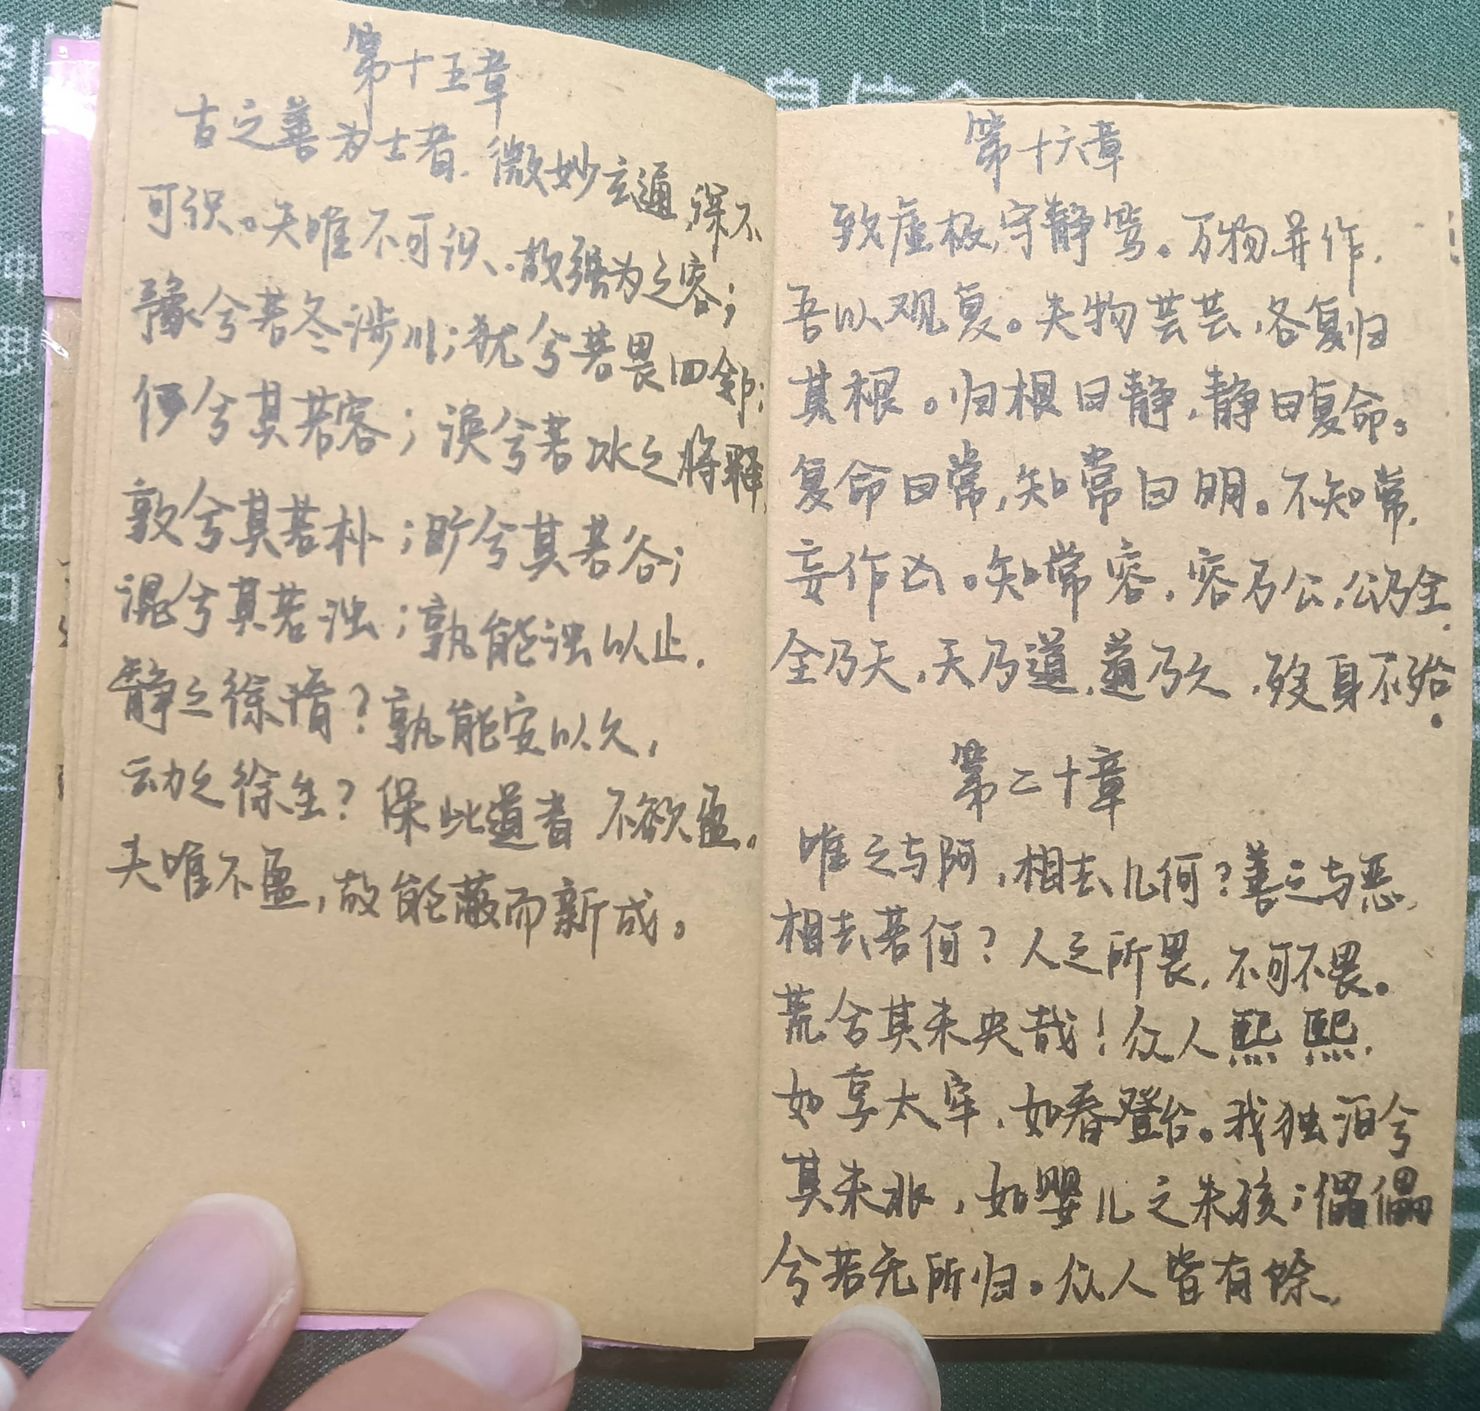 第十五章
古之善为士者,微妙玄通,深不
可识。夫唯不可识,故强为之容;
豫兮若冬涉川;犹兮若畏四邻;
俨兮其若容;涣兮若冰之将释
敦兮其若朴;旷兮其若谷;
混兮其若浊;孰能浊以止,
静之徐清?孰能安以久,
动之徐生?保此道者 不欲盈。
夫唯不盈,故能蔽而新成。
第十六章
致虚极,守静笃。万物并作,
吾以观复。夫物芸芸,各复归
其根。归根曰静,静曰复命。
复命曰常,知常曰明。不知常,
妄作凶。知常容,容乃公,公乃全,
全乃天,天乃道,道乃久,殁身不殆。
第二十章
唯之与阿,相去几何?善之与恶,
相去若何?人之所畏,不可不畏。
荒兮其未央哉!众人熙熙,
如享太牢,如春登台。我独泊兮
其未兆,如婴儿之未孩;儡儡
兮若无所归。众人皆有馀,